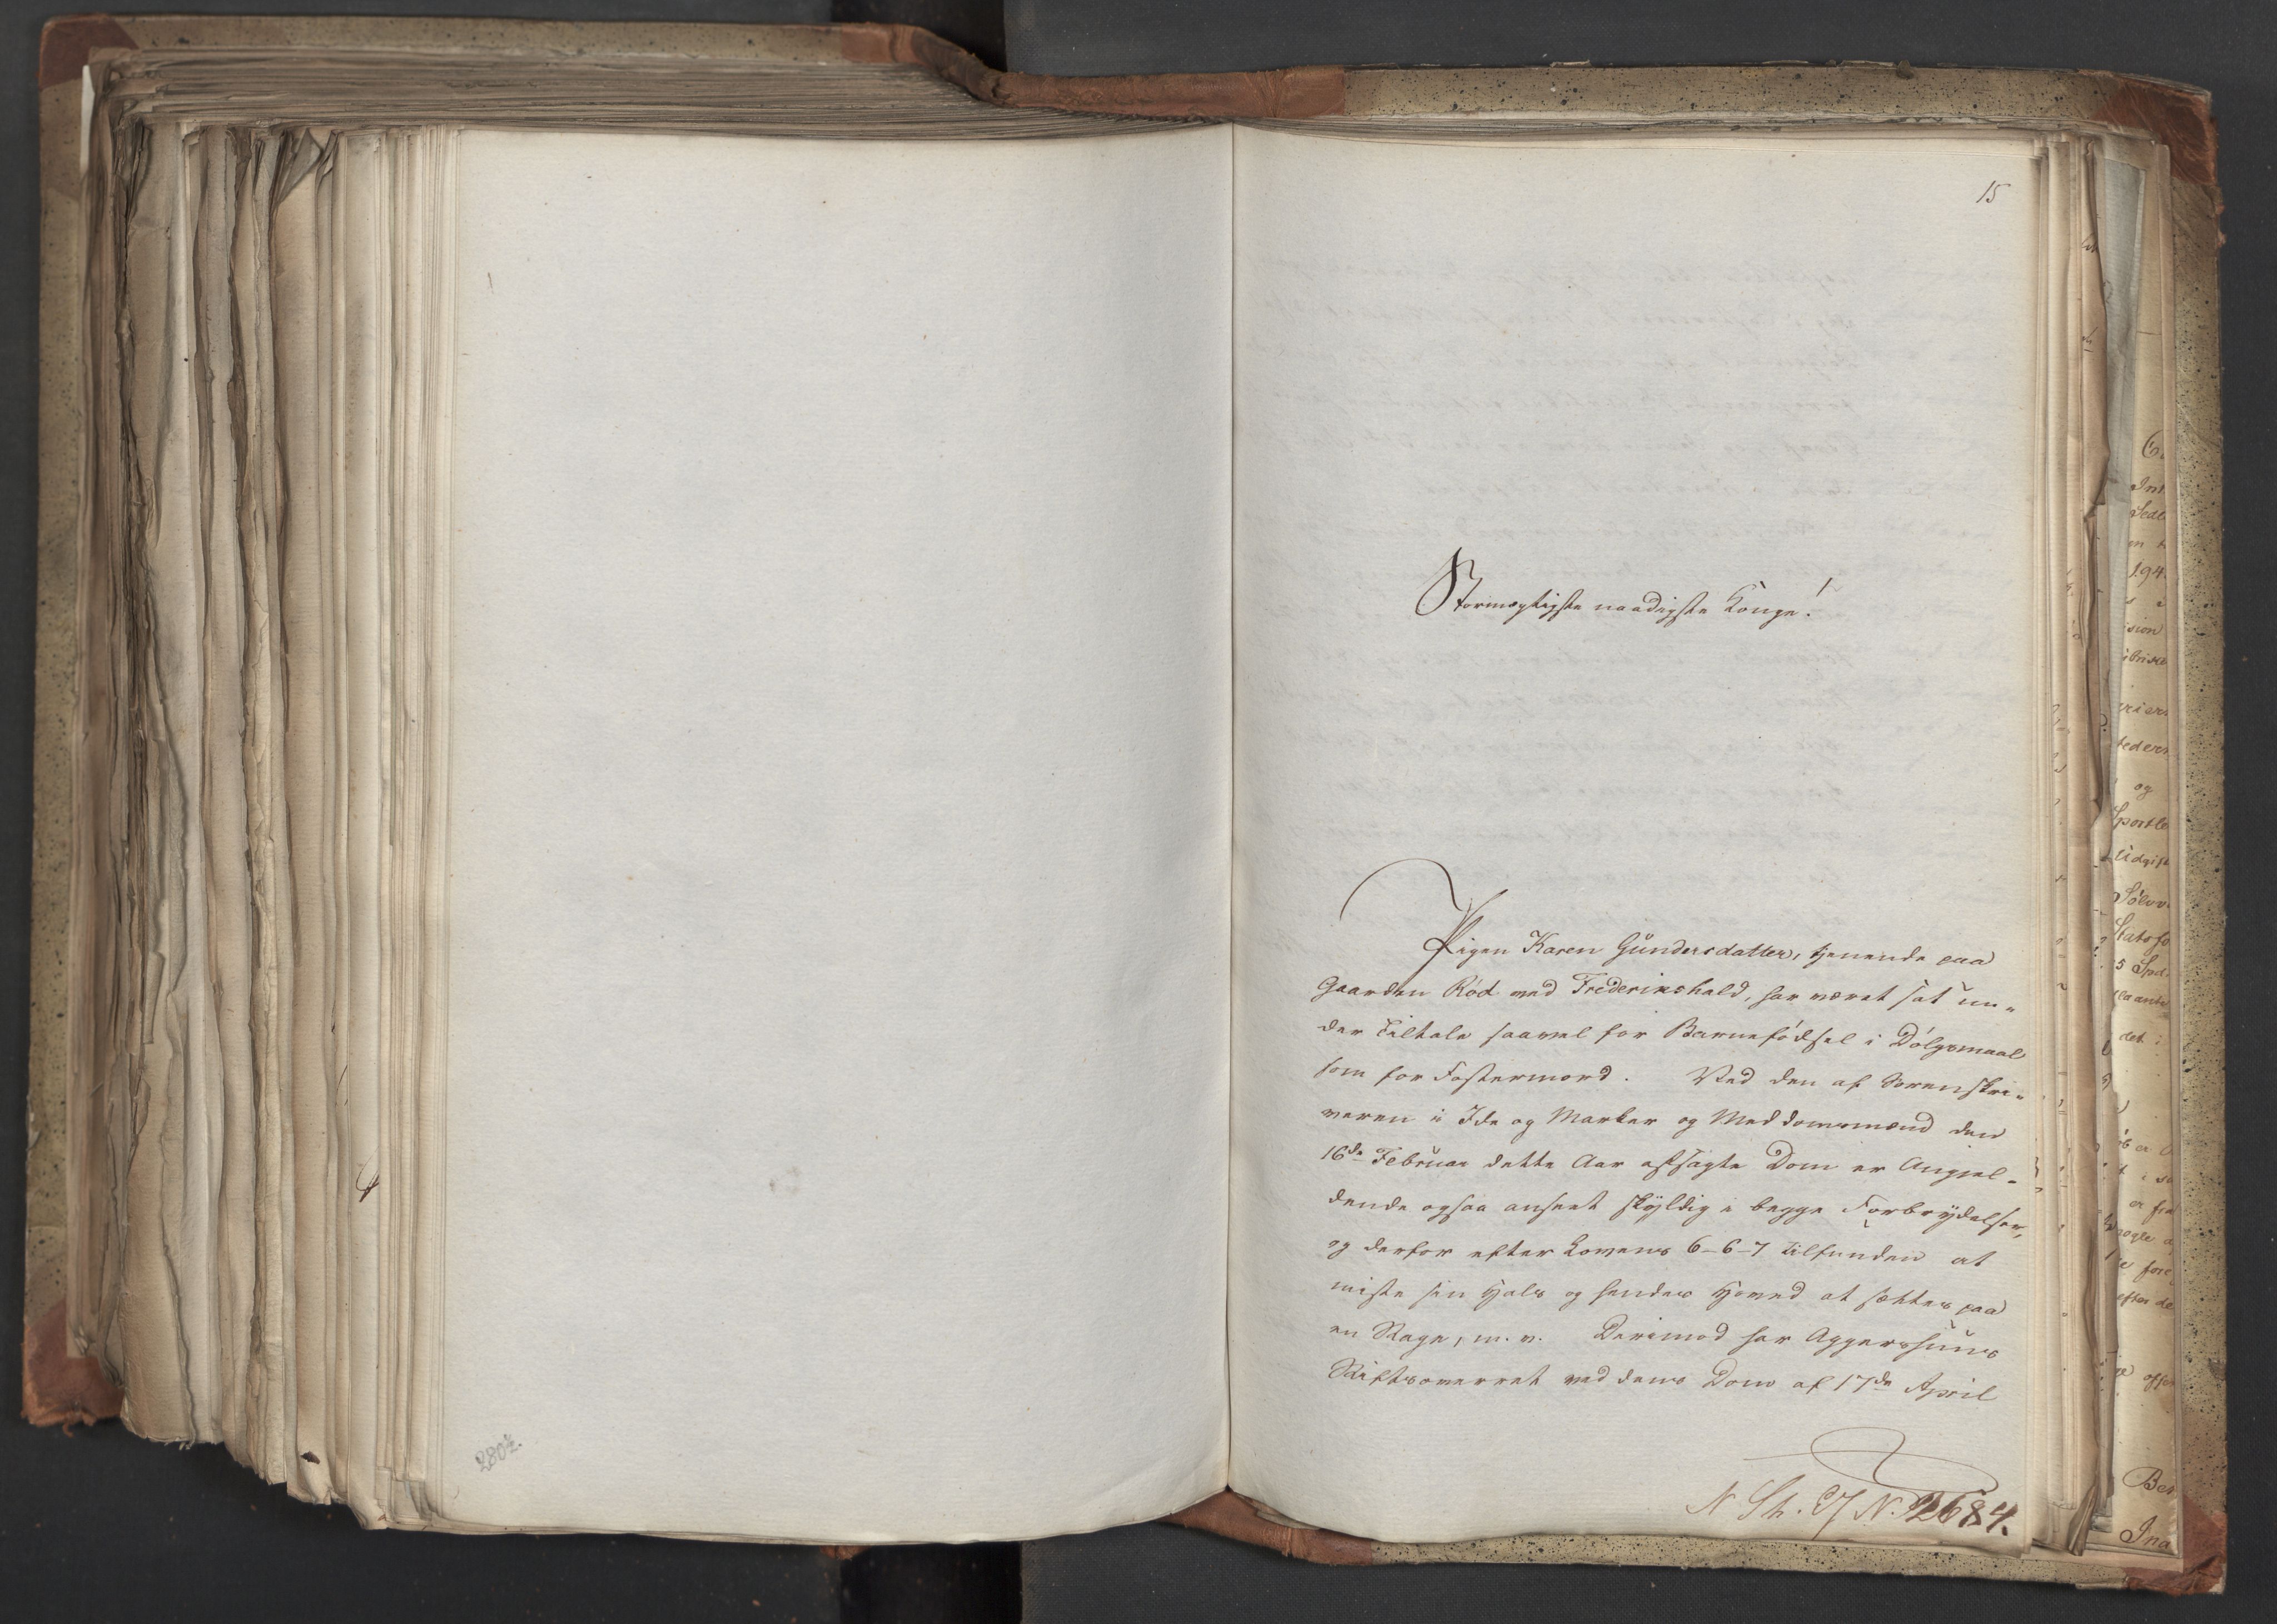 15
Stormægtigste naadigste Konge!
Pigen Karen Gundersdatter, tjenende paa
Gaarden Röd ved Frederikshald, har været sat un-
der Tiltale saavel for Barnefödsel i Dölgsmaal
som for Fostermord. Ved den af Sorenskri-
veren i Ide og Marker og Meddomsmænd den
16de Februar dette Aar afsagte Dom er Angjel-
dende ogsaa anseet skyldig i begge Forbrydelser,
og derfor efter Lovens 6-6-7 tilfunden at
miste sin Hals og hendes Hoved at sættes paa
en Stage, m. v. Derimod har Aggershuus
Stiftsoverret ved dens Dom af 17de April
2804.
N. 2684.